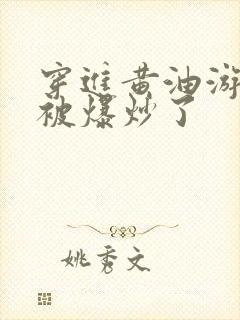 穿进黄油游
被爆炒了
姚秀文